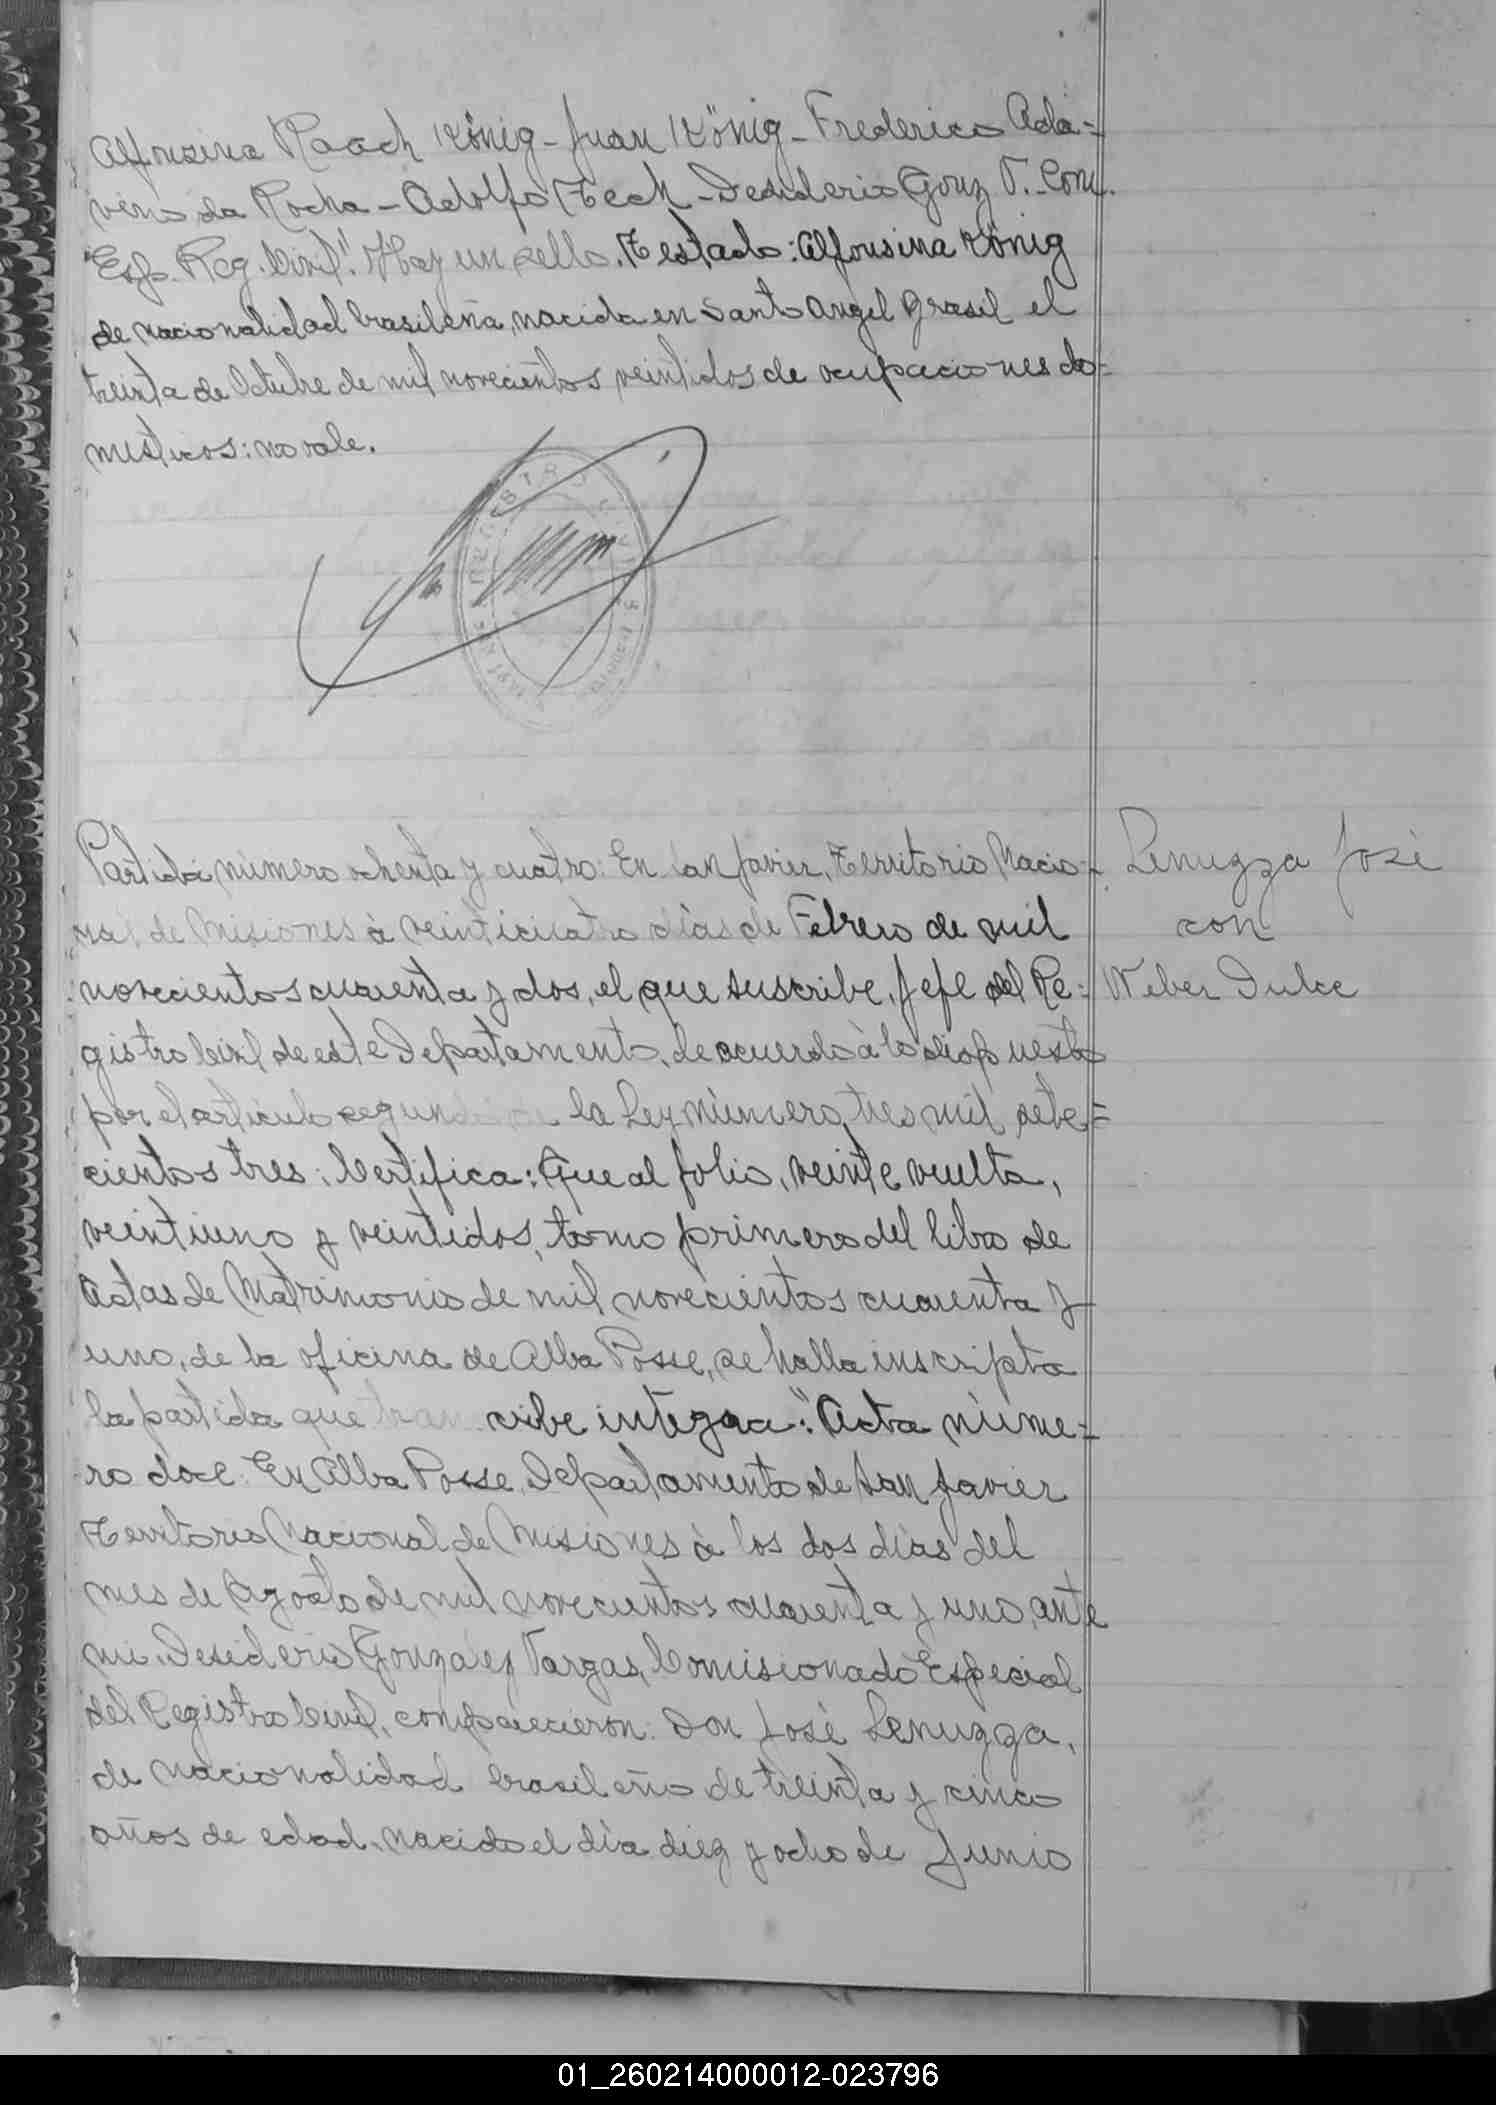 Alfonsina Raach König - Juan König - Frederico Ada=
vino da Rocha - Adolfo Zech - Desiderio Gonz V. - Com.
Esp. Reg. Civil". Hay un sello. Testado: Alfonsina König
de nacionalidad brasileña, nacida en Santo Angel Brasil el
treinta de Octubre de mil novecientos veintidos de ocupaciones do=
mesticos: no vale.
Partida número ochenta y cuatro: En San Javier, Territorio Nacio=
nal de Misiones à veinticuatro días de Febrero de mil
novecientos cuarenta y dos, el que suscribe, Jefe del Re=
gistro Civil de este Departamento, de acuerdo à lo dispuesto
por el artículo segundo de la Ley número, tres mil sete=
cientos tres; Certifica: Que al folio, veinte vuelta,
veintiuno y veintidos, tomo primero del libro de
Actas de Matrimonio de mil novecientos cuarenta y
uno, de la oficina de Alba Posse, se halla inscripta
la partida que transcribe integra: "Acta núme=
ro doce. En Alba Posse, Departamento de San Javier
Territorio Nacional de Misiones à los dos días del
mes de Agosto de mil novecientos cuarenta y uno, ante
mi, Desiderio Gonzalez Vargas, Comisionado Especial
del Registro Civil, comparecieron: Don José Lenuzza,
de nacionalidad brasileño de treinta y cinco
años de edad, nacido el día diez y ocho de Junio
Lenuzza José
con
Weber Dulce
01_260214000012-023796